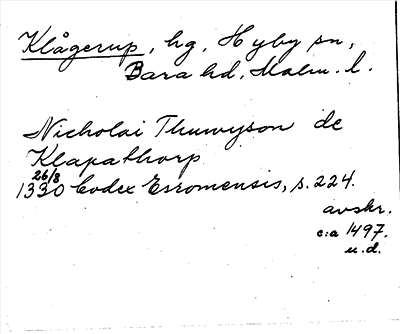 Klågerup, hg, Hyby sn,
Bara hd, Malm. l.
Nicholai Thuwyson de
Klapathorp
26/8
1330 Codex Esromensis, s. 224.
avskr.
c:a 1497.
u.d.